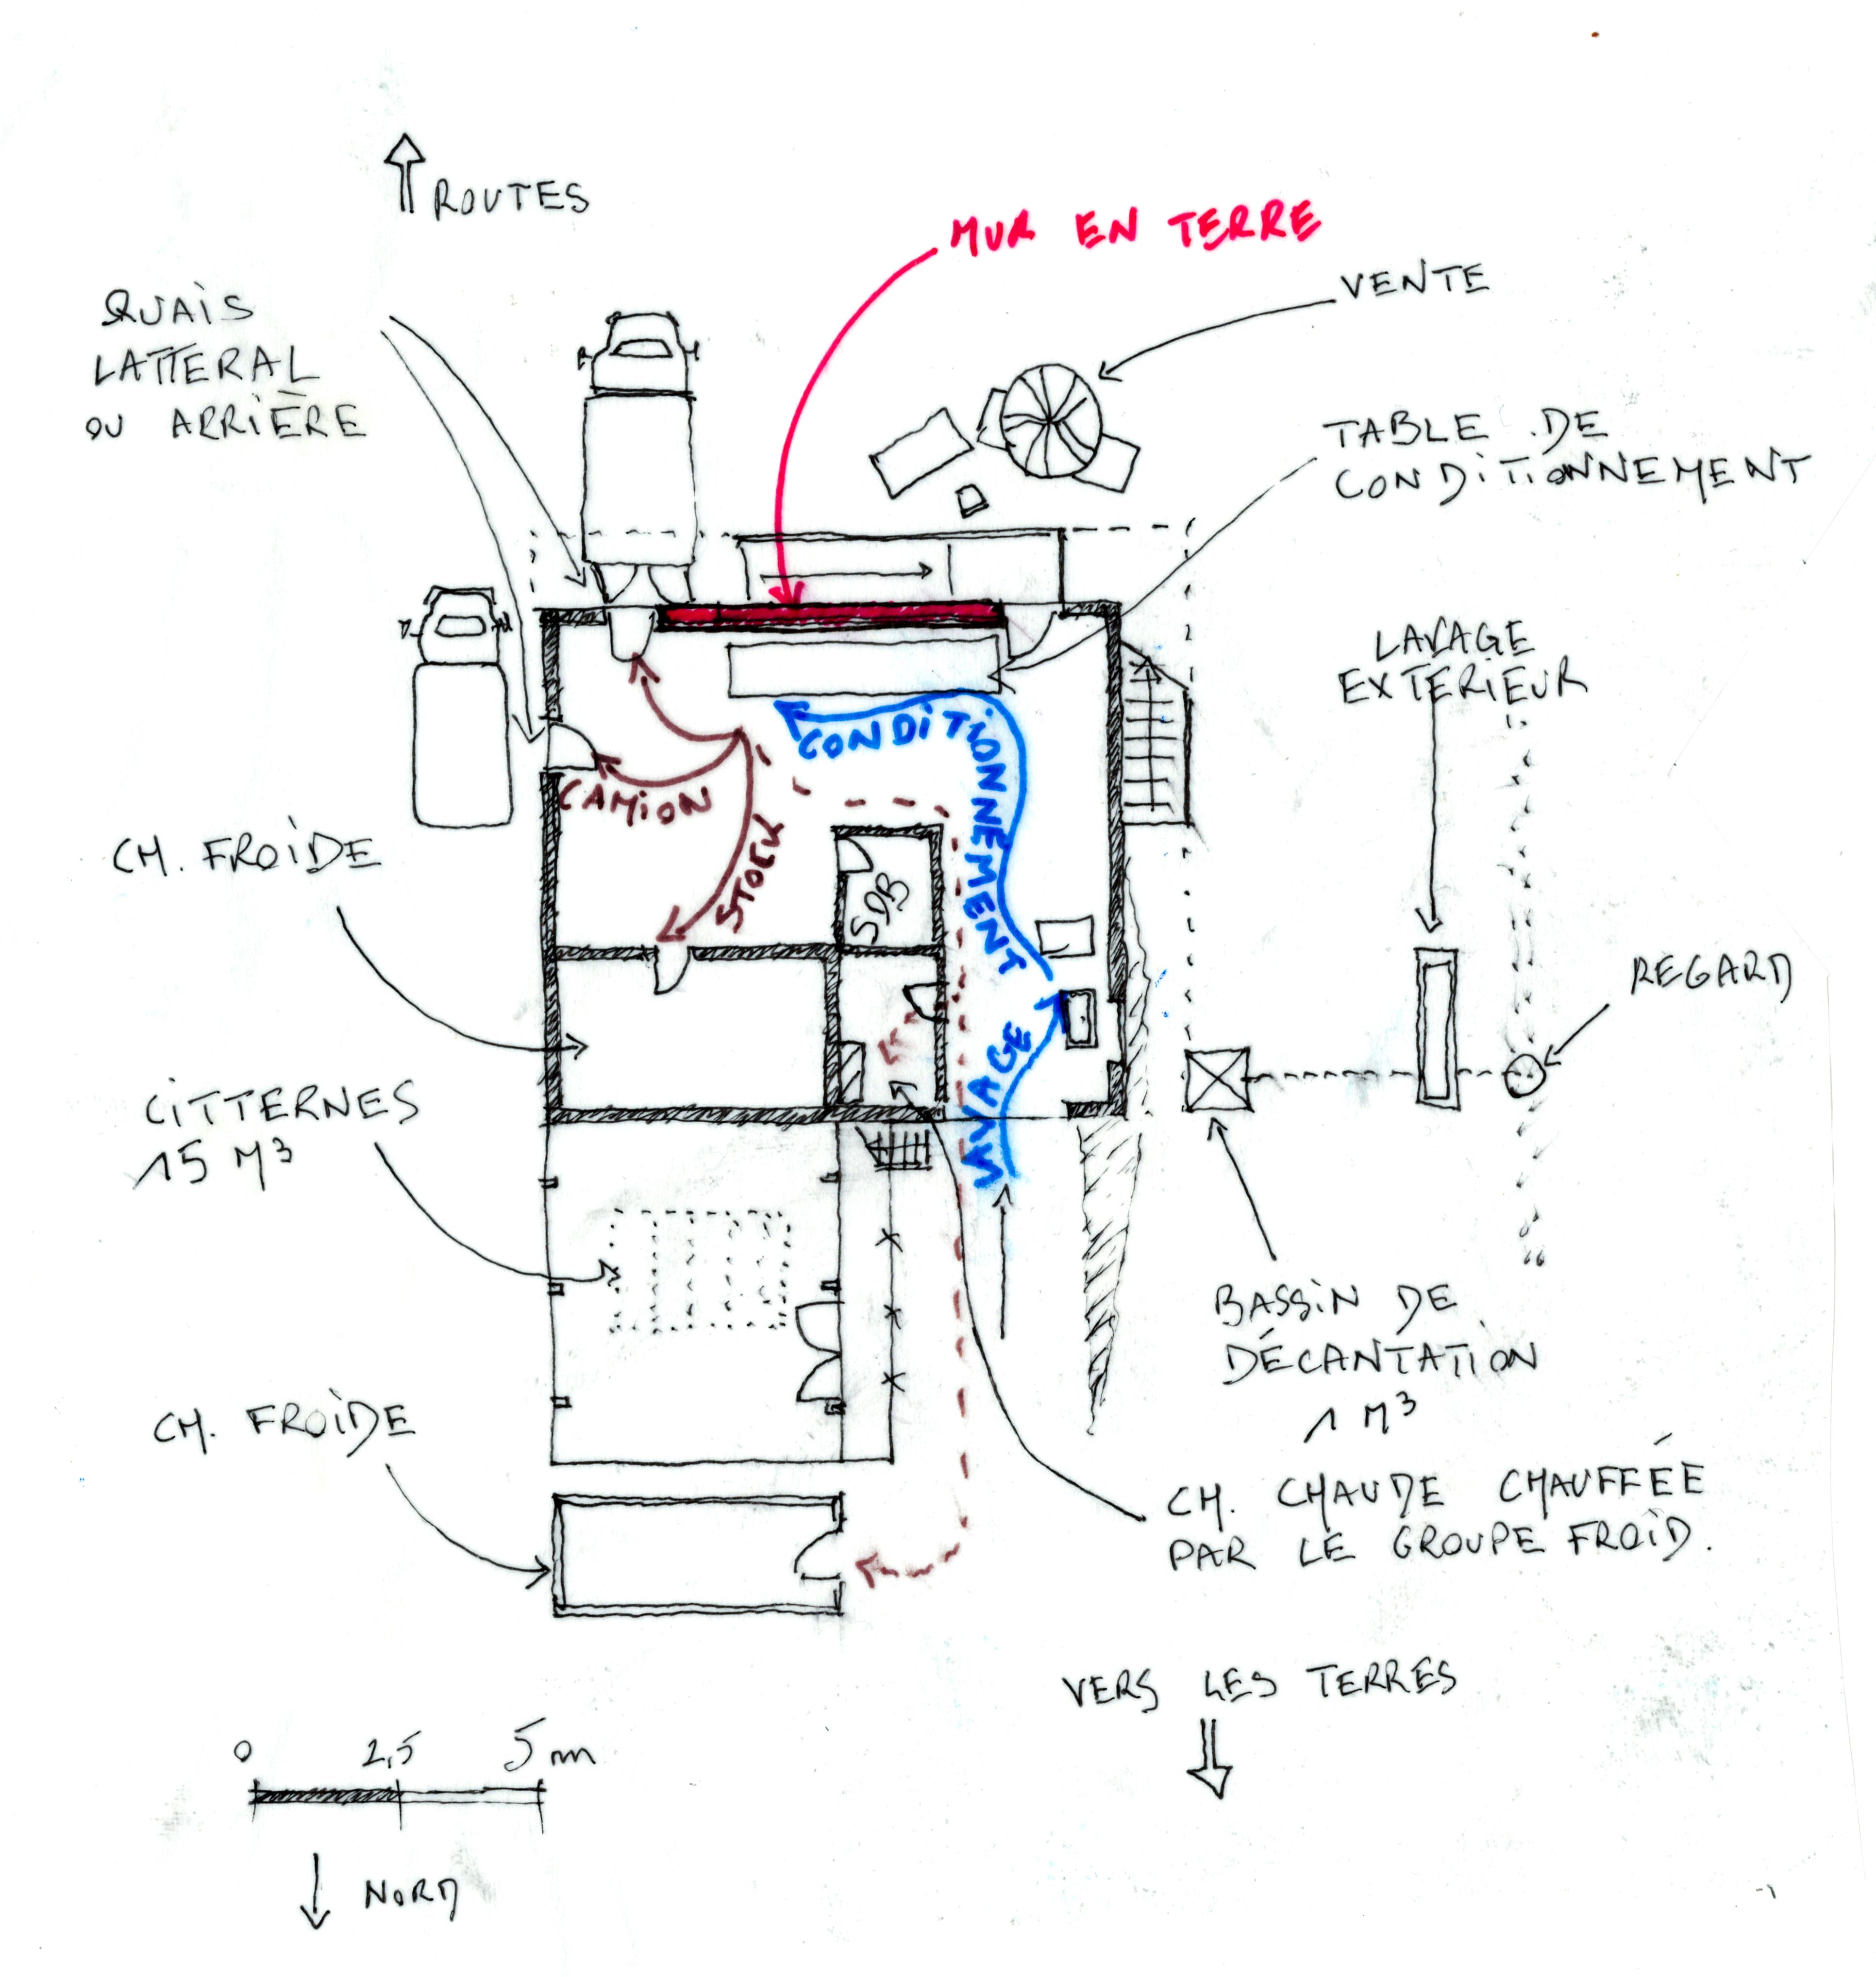 ROUTES
MUR EN TERRE
VENTE
QUAIS
LATTERAL
OU ARRIÈRE
TABLE DE
CONDITIONNEMENT
LAVAGE
EXTERIEUR
CONDITIONNEMENT
CAMION
STOCK
CH. FROIDE
SDB
REGARD
LAVAGE
CITTERNES
15 M³
BASSIN DE
DÉCANTATION
1 M³
CH. FROIDE
CH. CHAUDE CHAUFFÉE
PAR LE GROUPE FROID.
VERS LES TERRES
0 2,5 5 m
NORD